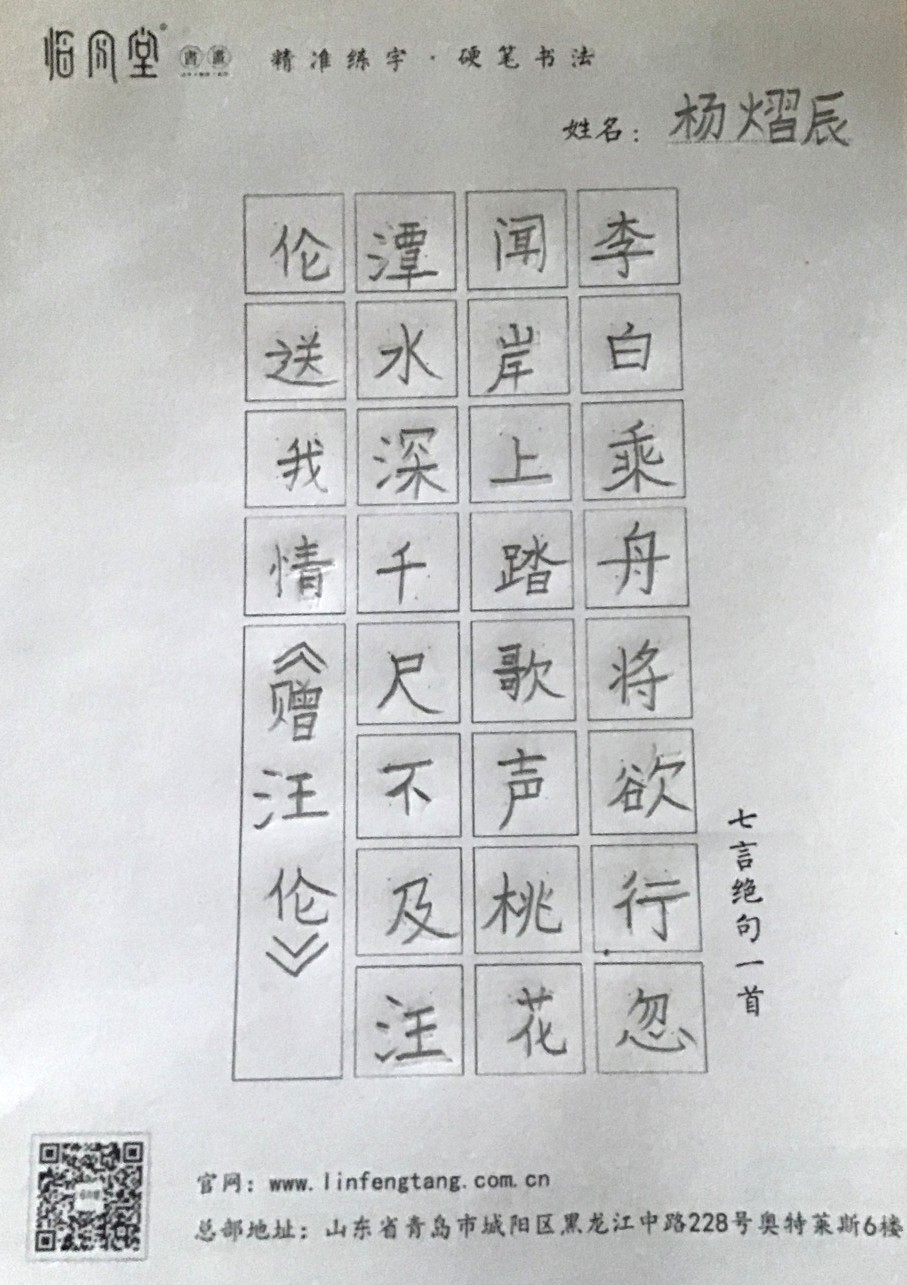 临风堂 书画 精准练字·硬笔书法
姓名：杨熠辰
七言绝句一首
李白乘舟将欲行忽
闻岸上踏歌声桃花
潭水深千尺不及汪
伦送我情《赠汪伦》
官网：www.linfengtang.com.cn
总部地址：山东省青岛市城阳区黑龙江中路228号奥特莱斯6楼